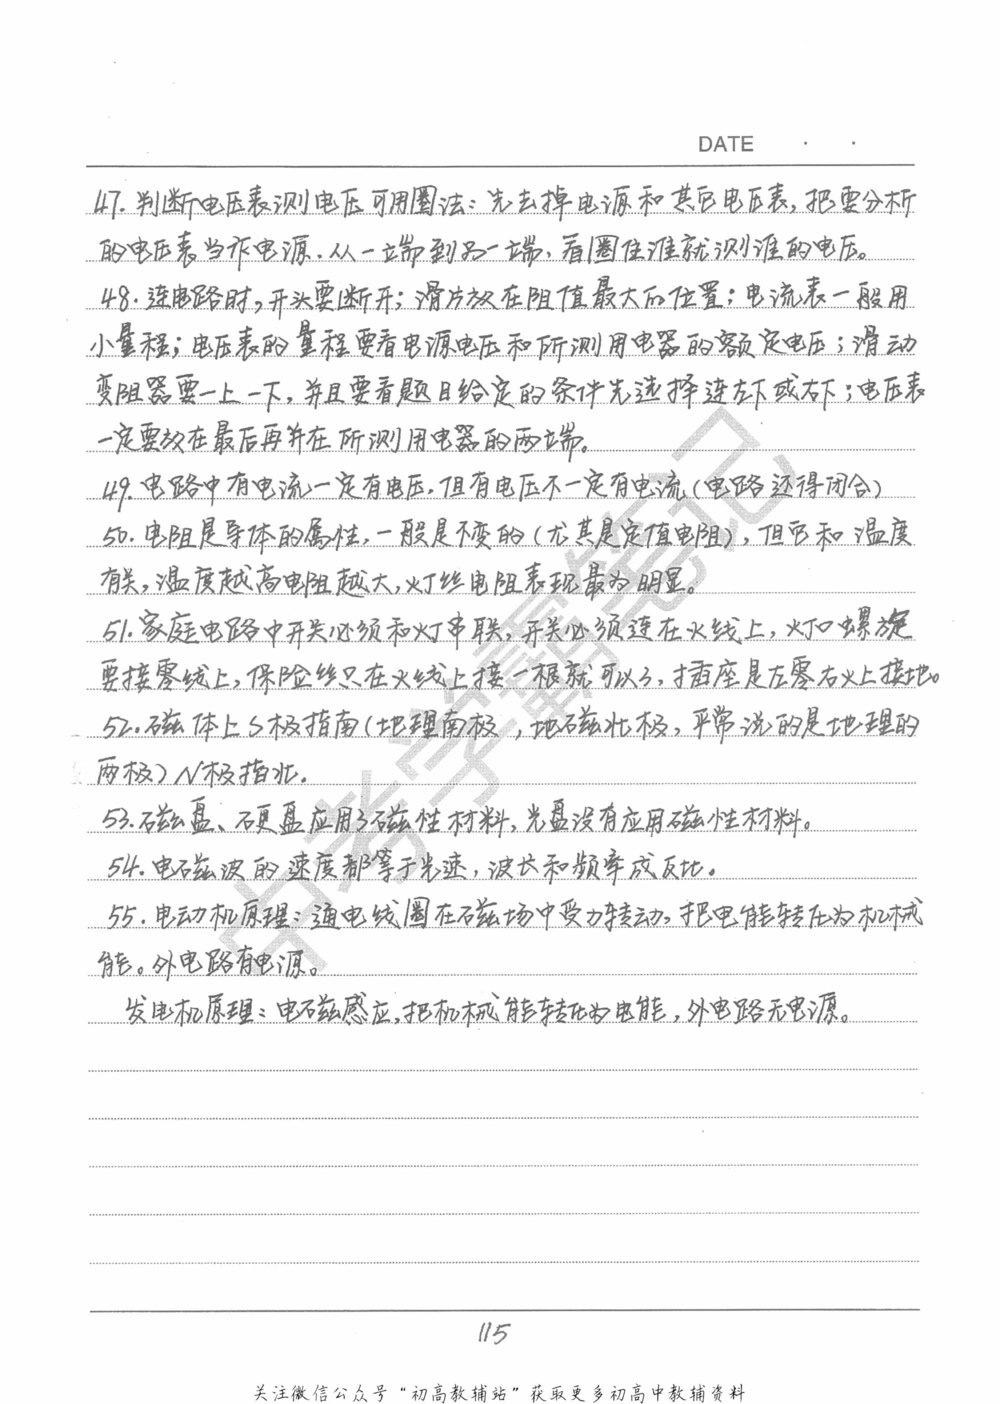 DATE · ·
47.判断电压表测电压可用圈法:先去掉电源和其它电压表,把要分析
的电压表当作电源.从一端到另一端,看圈住谁就测谁的电压。
48.连电路时,开头要断开;滑片放在阻值最大的位置;电流表一般用
小量程;电压表的量程要看电源电压和所测用电器的额定电压;滑动
变阻器要一上一下,并且要看题目给定的条件先选择连左下或右下;电压表
一定要放在最后再并在所测用电器的两端。
49.电路中有电流一定有电压,但有电压不一定有电流(电路还得闭合)
50.电阻是导体的属性,一般是不变的(尤其是定值电阻),但它和温度
有关,温度越高电阻越大,灯丝电阻表现最为明显。
51.家庭电路中开关必须和灯串联,开关必须连在火线上,灯口螺旋
要接零线上,保险丝只在火线上接一根就可以了,插座是左零右火上接地。
52.磁体上S极指南(地理南极,地磁北极,平常说的是地理的
两极)N极指北.
53.磁盘、硬盘应用了磁性材料,光盘没有应用磁性材料。
54.电磁波的速度都等于光速,波长和频率成反比。
55.电动机原理:通电线圈在磁场中受力转动,把电能转化为机械
能。外电路有电源。
发电机原理:电磁感应,把机械能转化为电能,外电路无电源。
中考学霸笔记
115
关注微信公众号“初高教辅站”获取更多初高中教辅资料